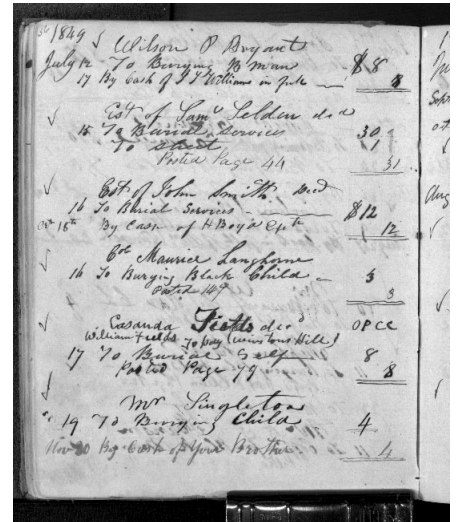 1849 Wilson P Bryant
July 12 To Burying B man $8
17 By Cash of J T Williams in full 8
Est of Sam<sup>l</sup> Selden dec<sup>d</sup>
15 To Burial Services 30
To 1
Posted Page 44 31
Est of John Smith Decd
16 To Burial Services $12
Oct 15th By Cash of H Boyd 12
Col Maurice Langhorne
16 To Burying Black Child 3
Posted 149 3
Casanda Fields decd OPCC
William Fields To pay (Winstons Hill)
17 To Burial Self 8
Posted Page 79 8
Mr Singleton
19 To Burying Child 4
Nov 20 By Cash of your Brother 4